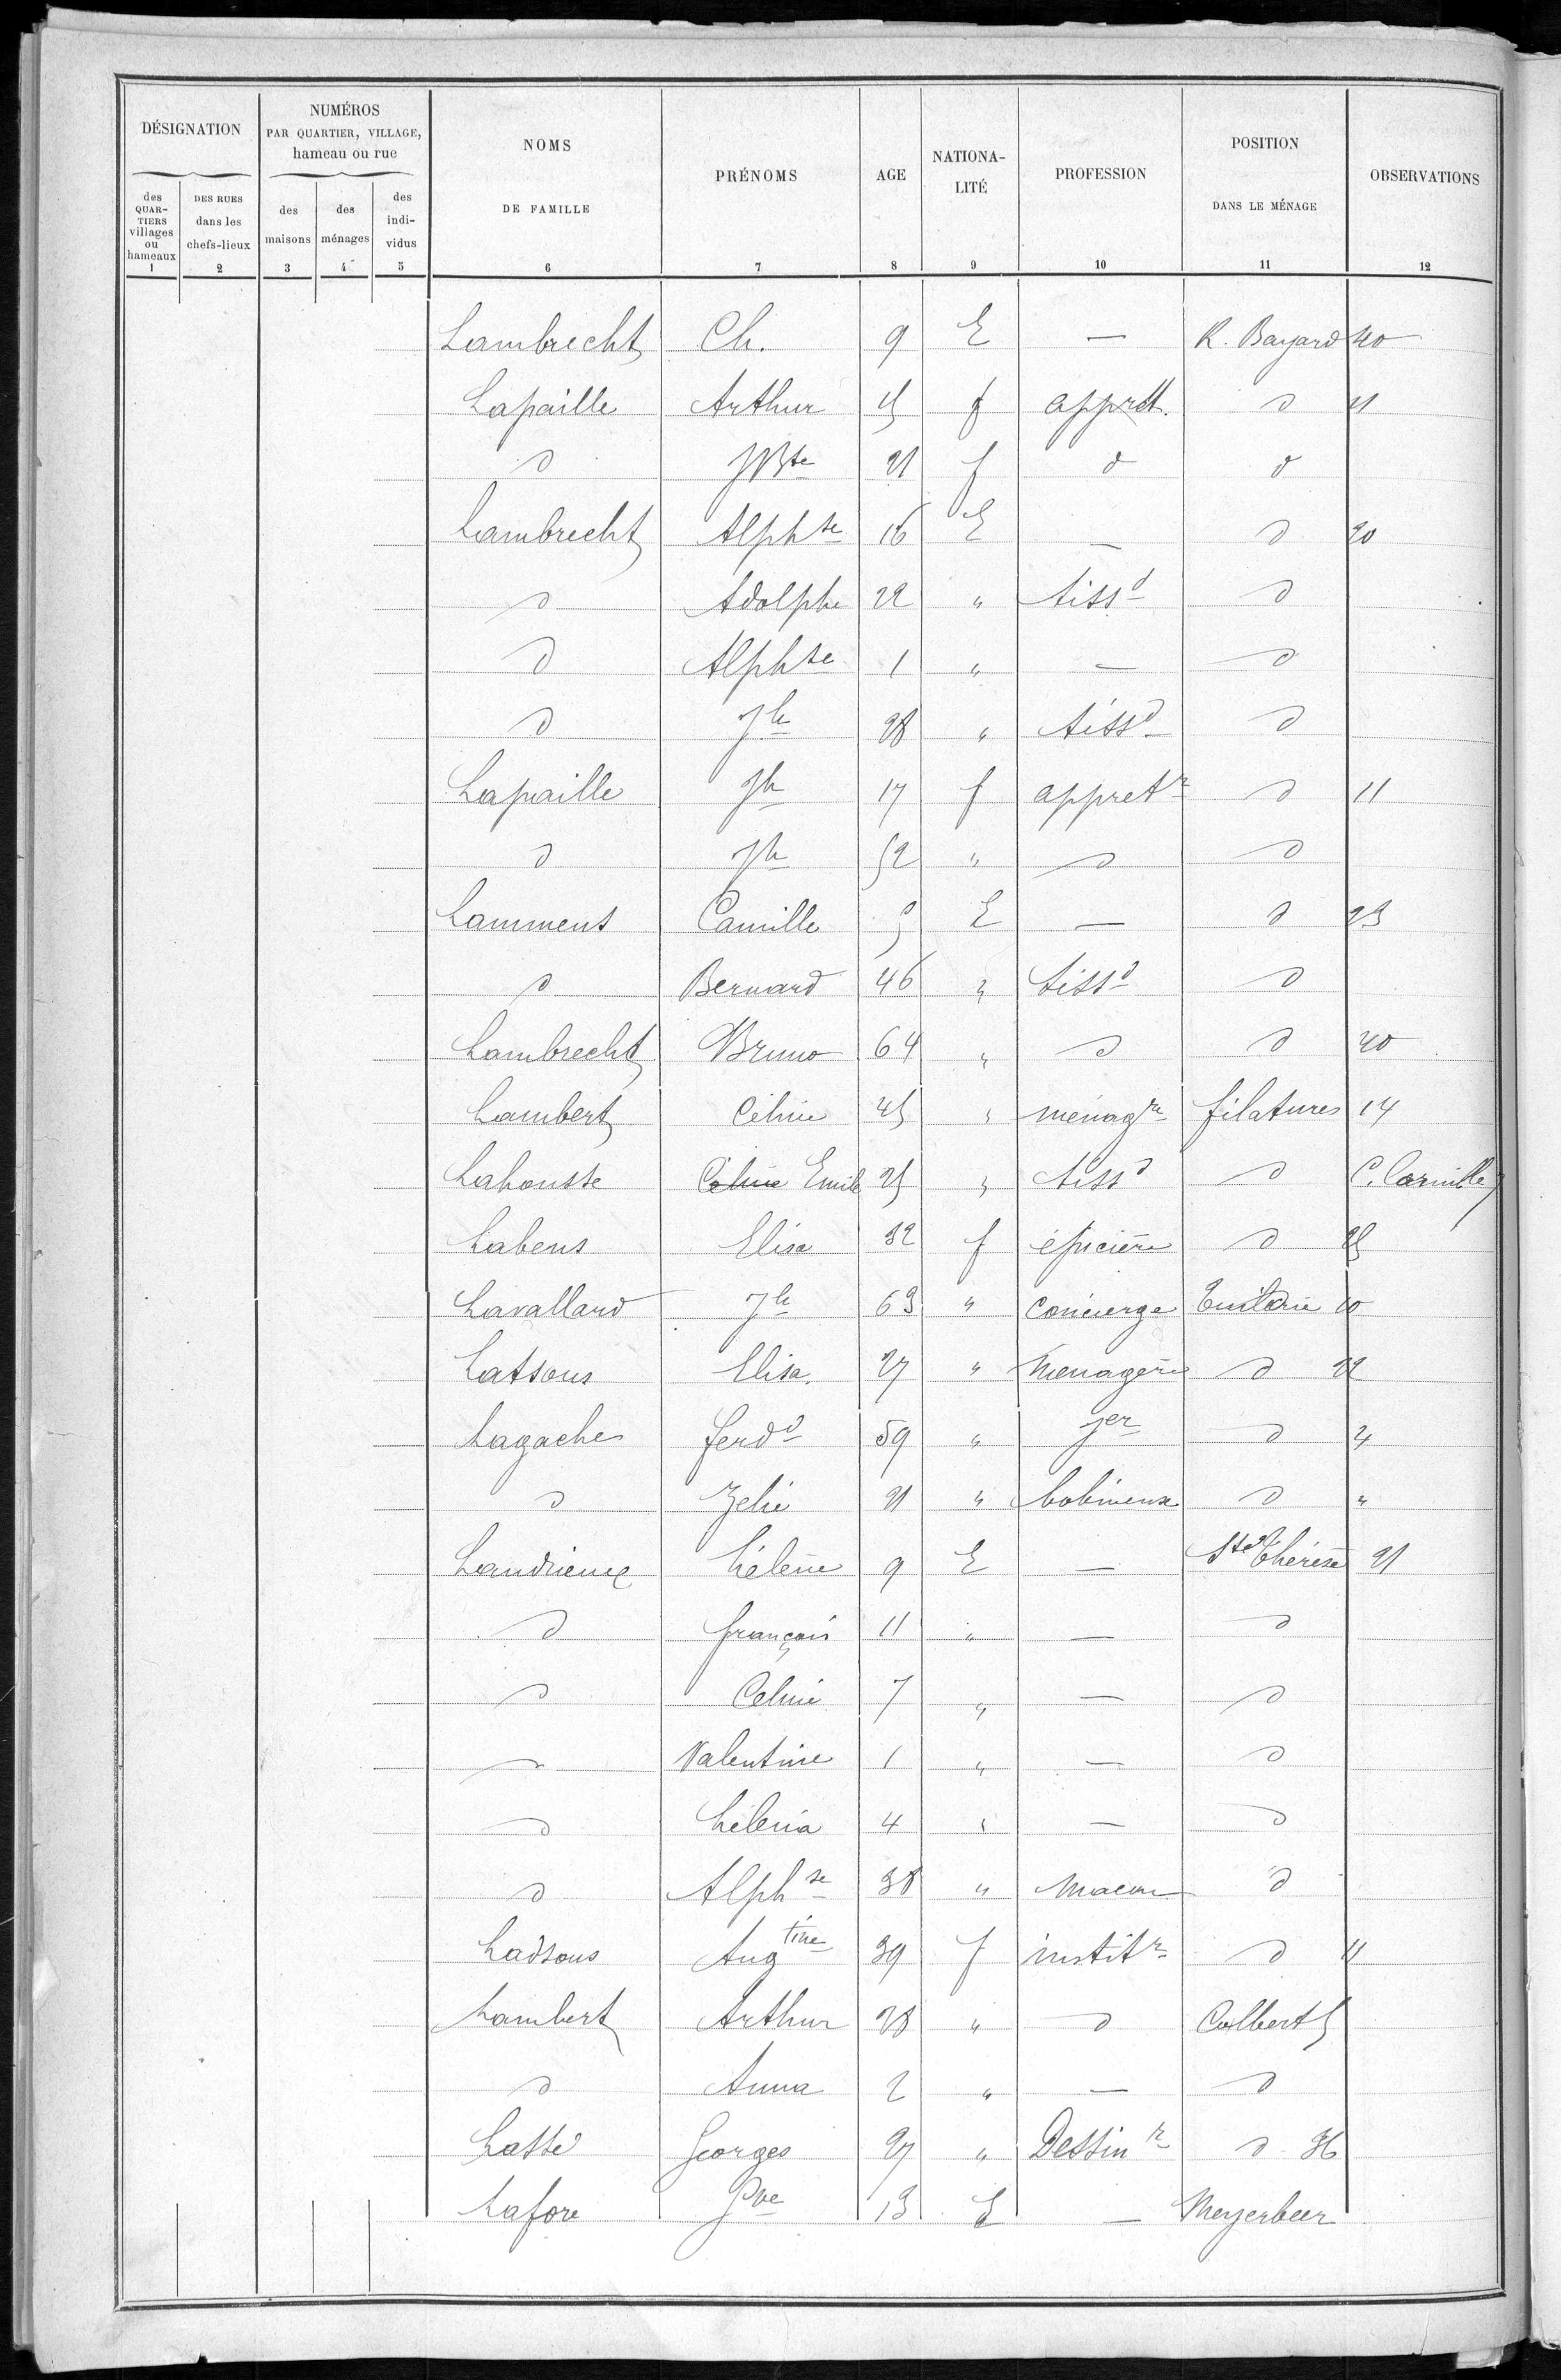 DÉSIGNATION NUMÉROS PAR QUARTIER, VILLAGE, hameau ou rue NOMS DE FAMILLE PRÉNOMS AGE NATIONA-LITÉ PROFESSION POSITION DANS LE MÉNAGE OBSERVATIONS
des QUAR-TIERS villages ou hameaux DES RUES dans les chefs-lieux des maisons des ménages des indi-vidus
1 2 3 4 5 6 7 8 9 10 11 12
Lambrecht Ch. 9 E — R. Bayard 40
Lapaille Arthur 15 f apprett. d 11
d JBte 21 f d d
Lambrecht Alphse 16 E — d 20
d Adolphe 22 " tissd d
d Alphse 1 " — d
d Jh 28 " tissd d
Lapaille Jh 17 f appretr d 11
d Jh 52 " d d
Lamment Camille 5 E — d 23
d Bernard 46 " tissd d
Lambrecht Bruno 64 " d d 40
Lambert Céline 45 " ménagre filatures 14
Lahousse Céline Emile 25 " tissd d C. Cornille
Labens Elisa 32 f épicière d 25
Lavallard Jh 63 " concierge 10
Latsous Elisa. 27 " Menagère d 22
Lagache ferdd 59 " jer d 4
d Zelie 21 " bobineuse d "
Landrieux hélène 9 E — Ste Thérèse 21
d françois 11 " — d
d Celine 7 " — d
d Valentine 1 " — d
d hélena 4 " — d
d Alphse 38 " Macon d
Ladsous Augtine 39 f institr d 11
Lambert Arthur 28 " d Colbert 5
d Anna 2 " — d
Lassé Georges 27 " Dessinr d 36
Lafore Gve 13 E — Meyerbeer